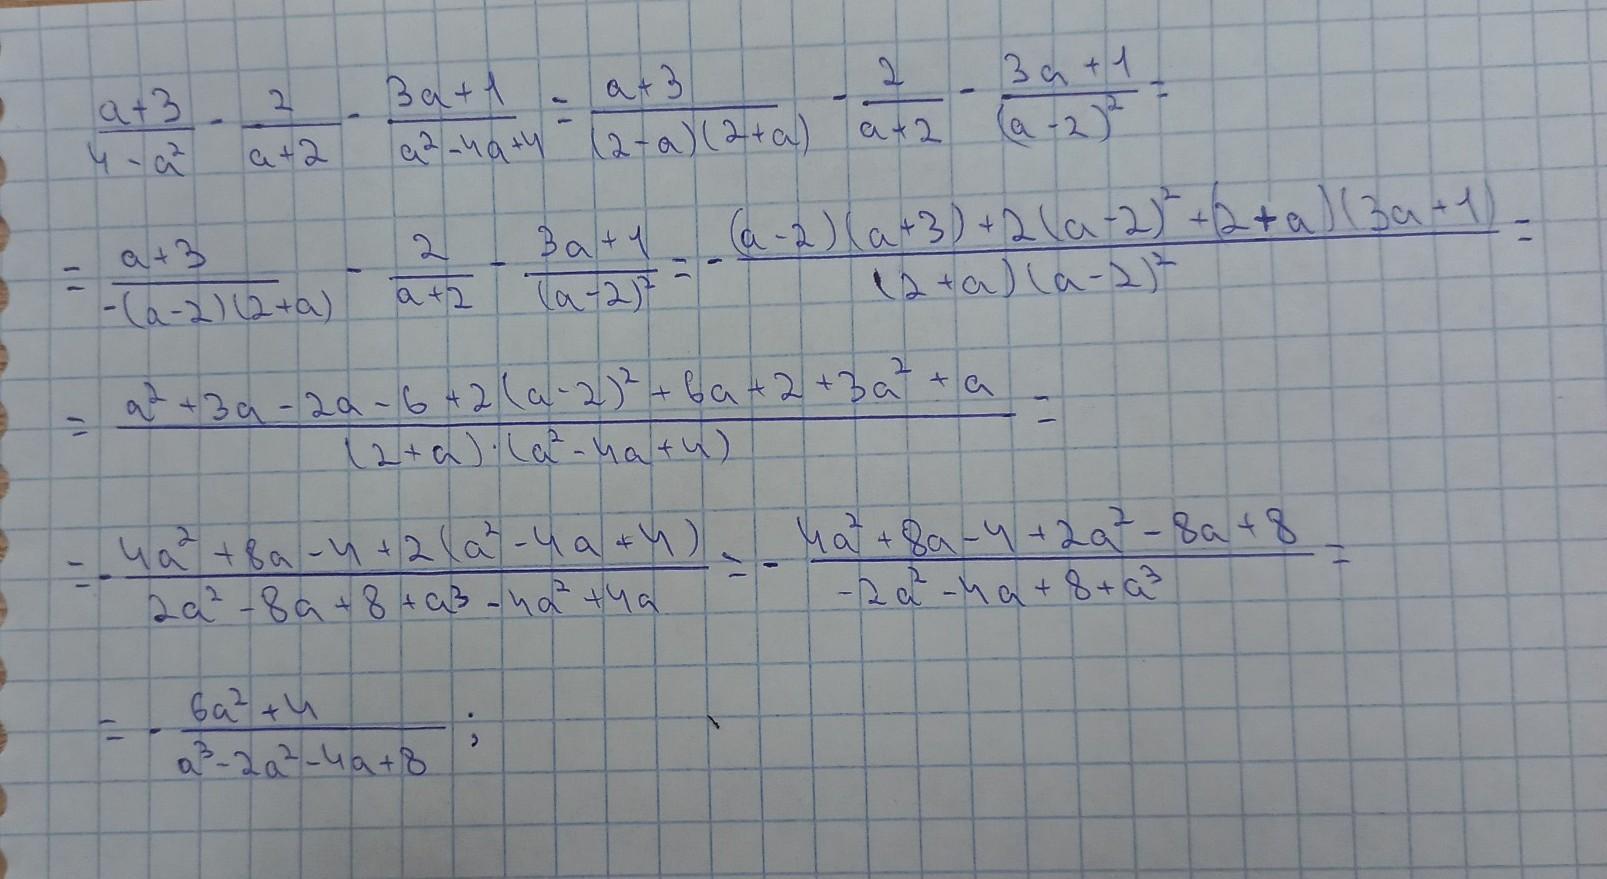 (a+3)/(4-a²) - 2/(a+2) - (3a+1)/(a²-4a+4) = (a+3)/((2-a)(2+a)) - 2/(a+2) - (3a+1)/(a-2)² =
= (a+3)/(-(a-2)(2+a)) - 2/(a+2) - (3a+1)/(a-2)² = - ((a-2)(a+3)+2(a-2)²+(2+a)(3a+1))/((2+a)(a-2)²) =
= (a²+3a-2a-6+2(a-2)²+6a+2+3a²+a)/((2+a)·(a²-4a+4)) =
= - (4a²+8a-4+2(a²-4a+4))/(2a²-8a+8+a³-4a²+4a) = - (4a²+8a-4+2a²-8a+8)/(-2a²-4a+8+a³) =
= - (6a²+4)/(a³-2a²-4a+8) ;